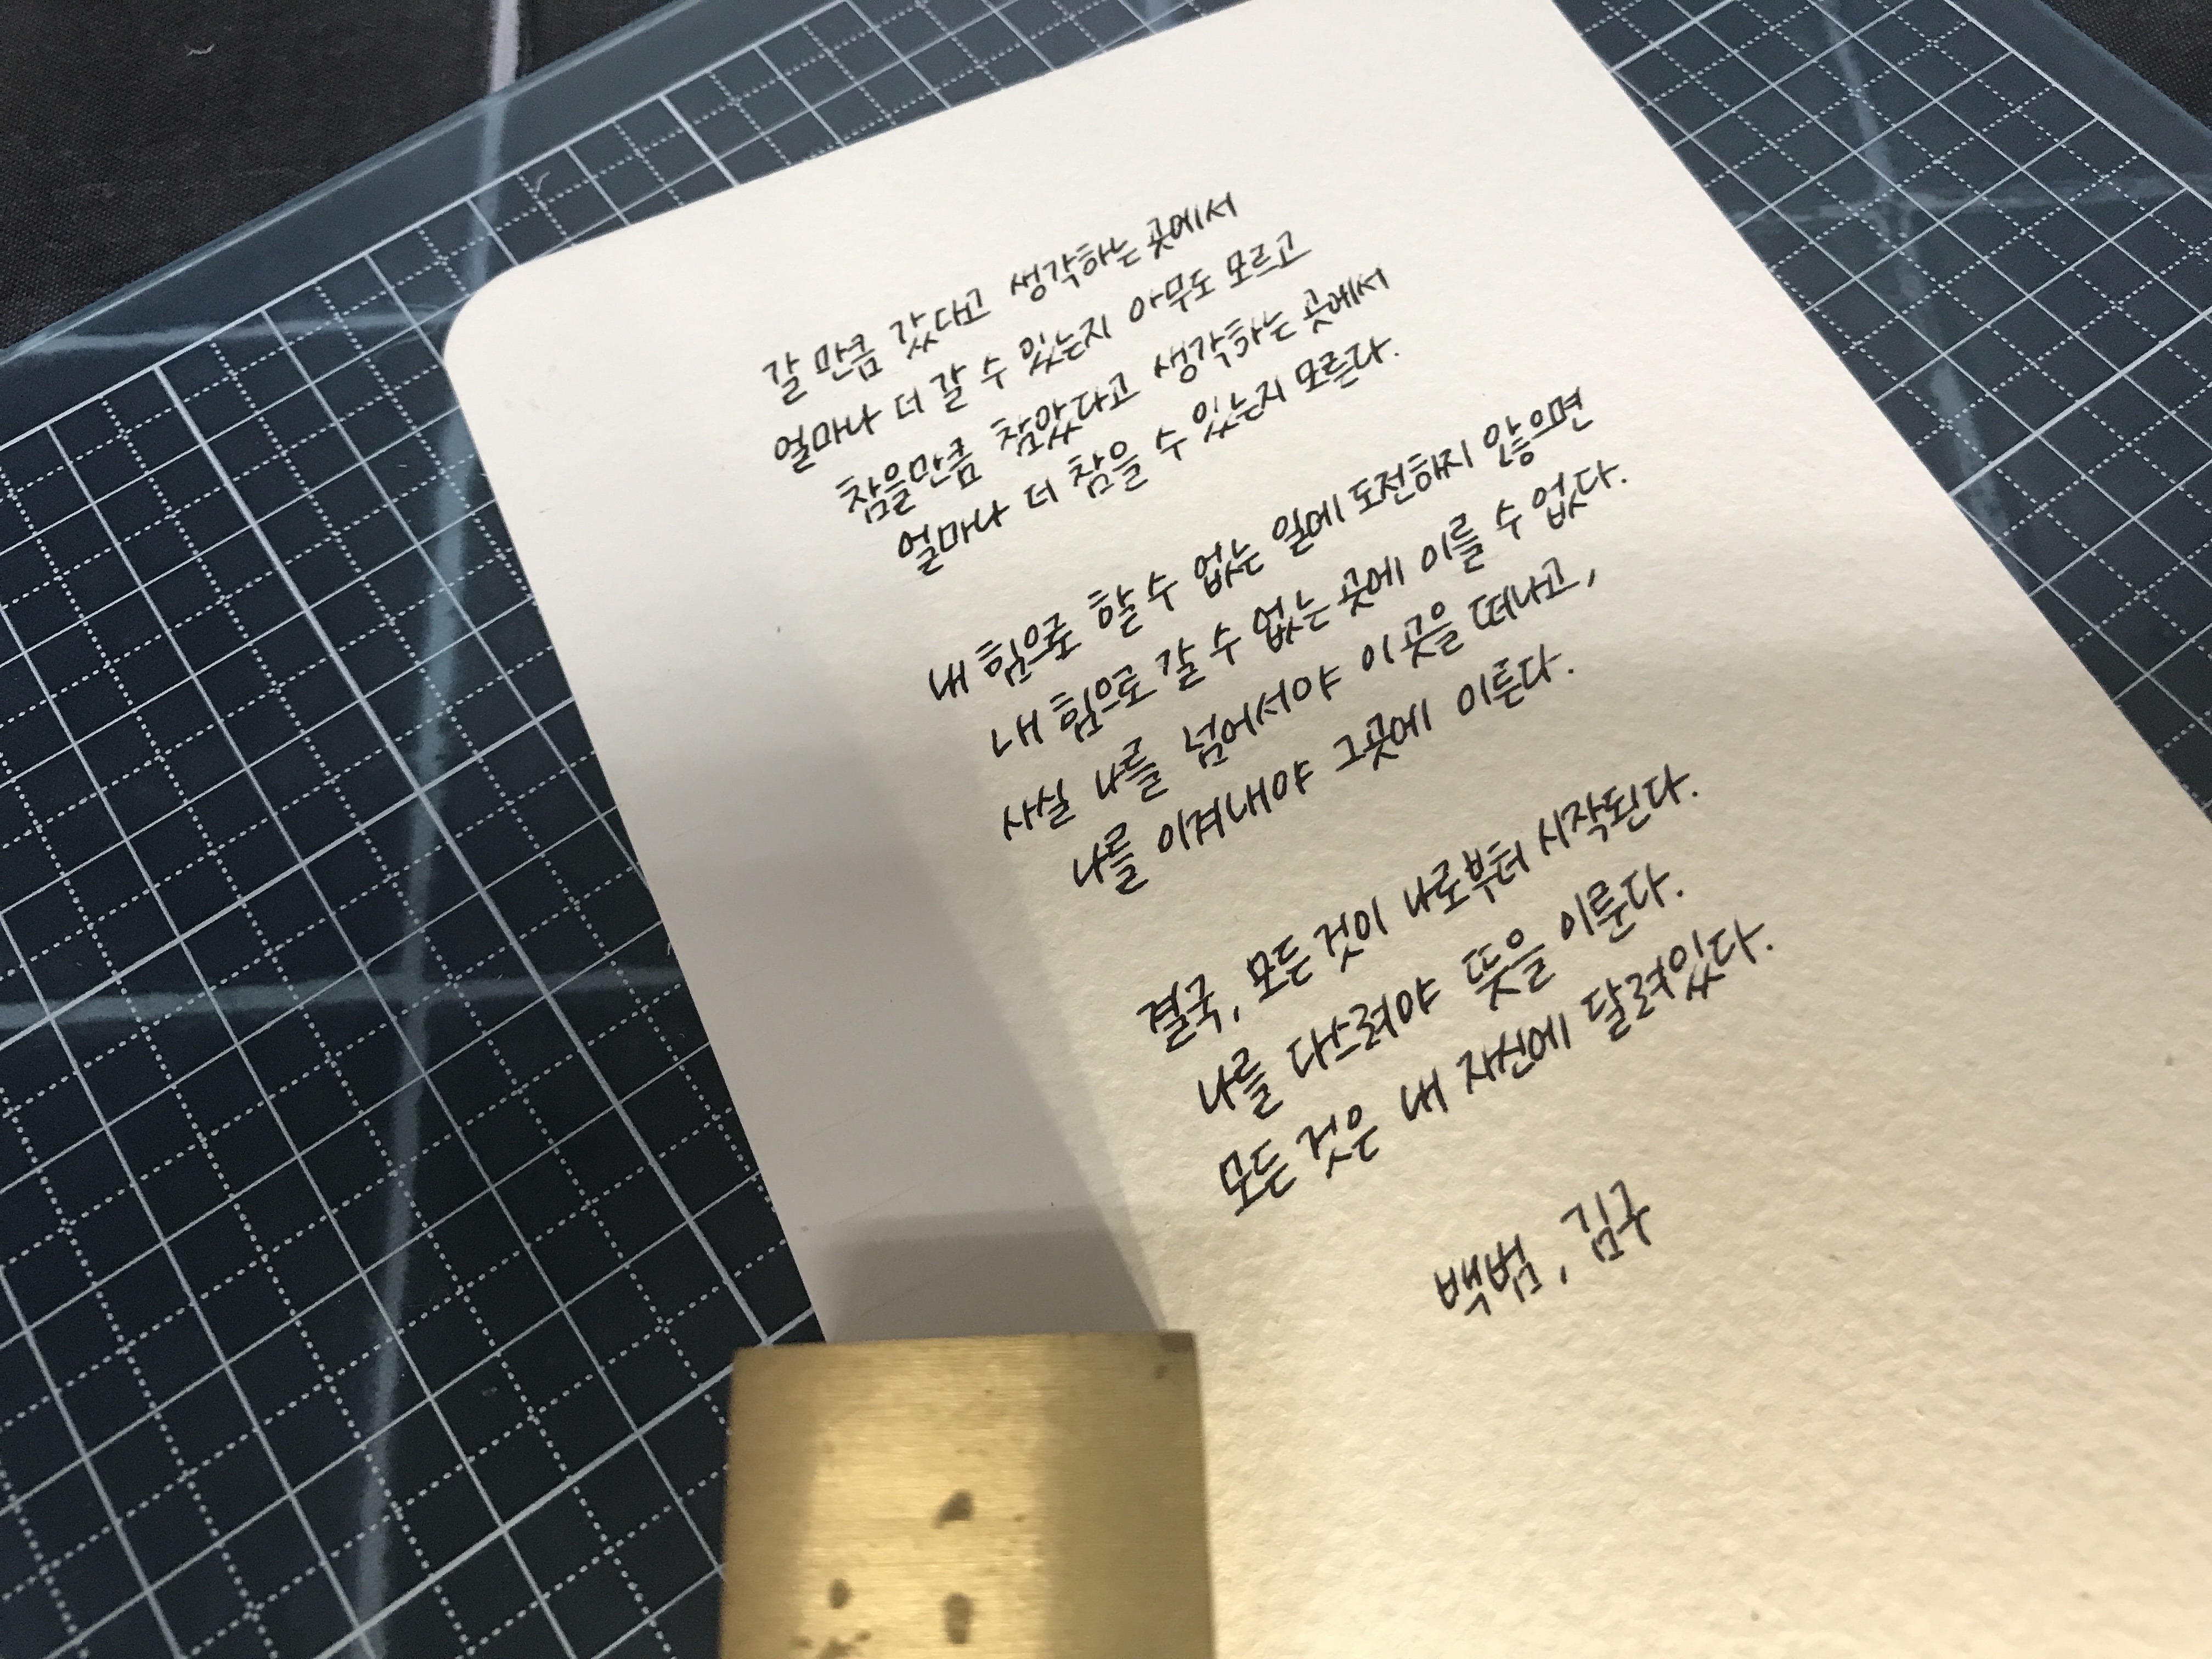 갈 만큼 갔다고 생각하는 곳에서
얼마나 더 갈 수 있는지 아무도 모르고
참을만큼 참았다고 생각하는 곳에서
얼마나 더 참을 수 있는지 모른다.
내 힘으로 할 수 없는 일에 도전하지 않으면
내 힘으로 갈 수 없는 곳에 이를 수 없다.
사실 나를 넘어서야 이곳을 떠나고,
나를 이겨내야 그곳에 이른다.
결국, 모든 것이 나로부터 시작된다.
나를 다스려야 뜻을 이룬다.
모든 것은 내 자신에 달려있다.
백범, 김구